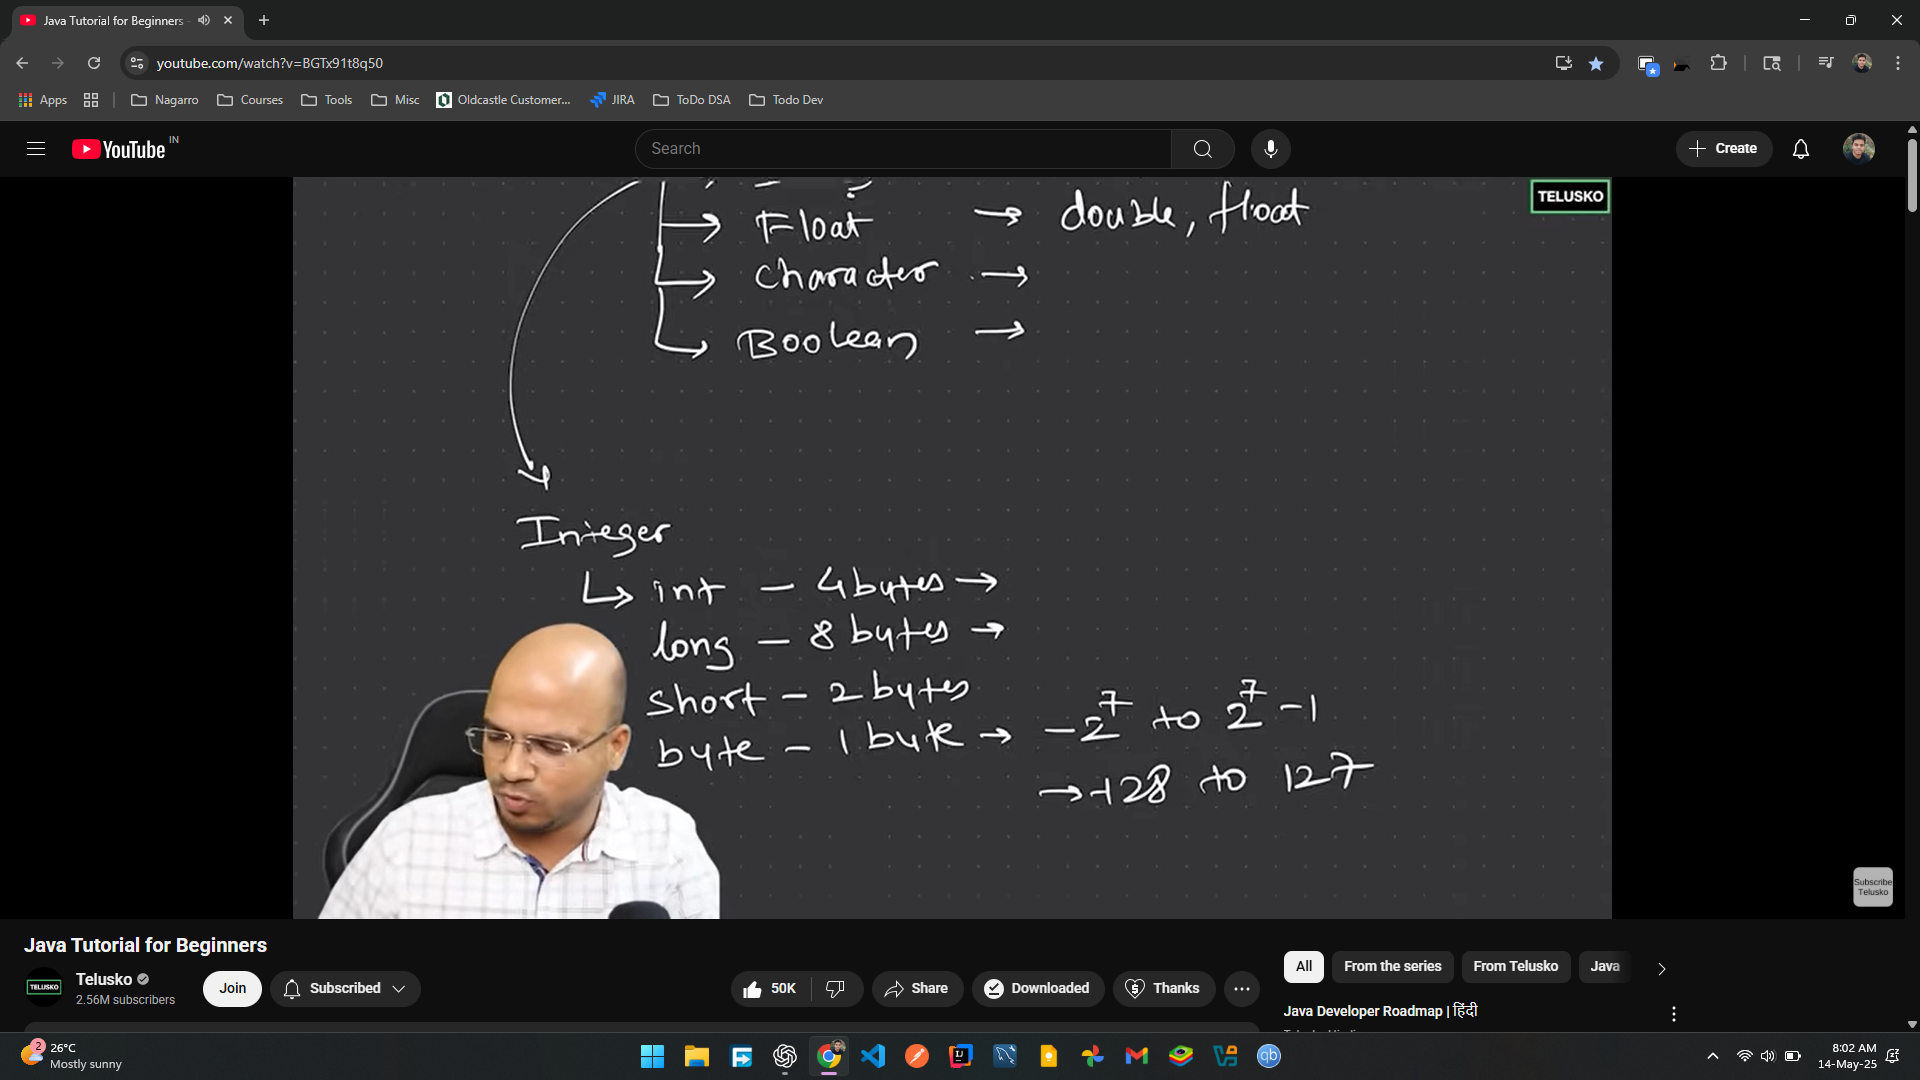 Java Tutorial for Beginners -
youtube.com/watch?v=BGTx91t8q50
Apps Nagarro Courses Tools Misc Oldcastle Customer... JIRA ToDo DSA Todo Dev
YouTube IN
Search
Create
TELUSKO
Float → double, float
Character →
Boolean →
Integer
int - 4 bytes →
long - 8 bytes →
short - 2 bytes
byte - 1 byte → -2^7 to 2^7 -1
→ -128 to 127
Subscribe
Telusko
Java Tutorial for Beginners
TELUSKO
Telusko
2.56M subscribers
Join
Subscribed
50K
Share
Downloaded
Thanks
All
From the series
From Telusko
Java
Java Developer Roadmap | हिंदी
2
26°C
Mostly sunny
8:02 AM
14-May-25